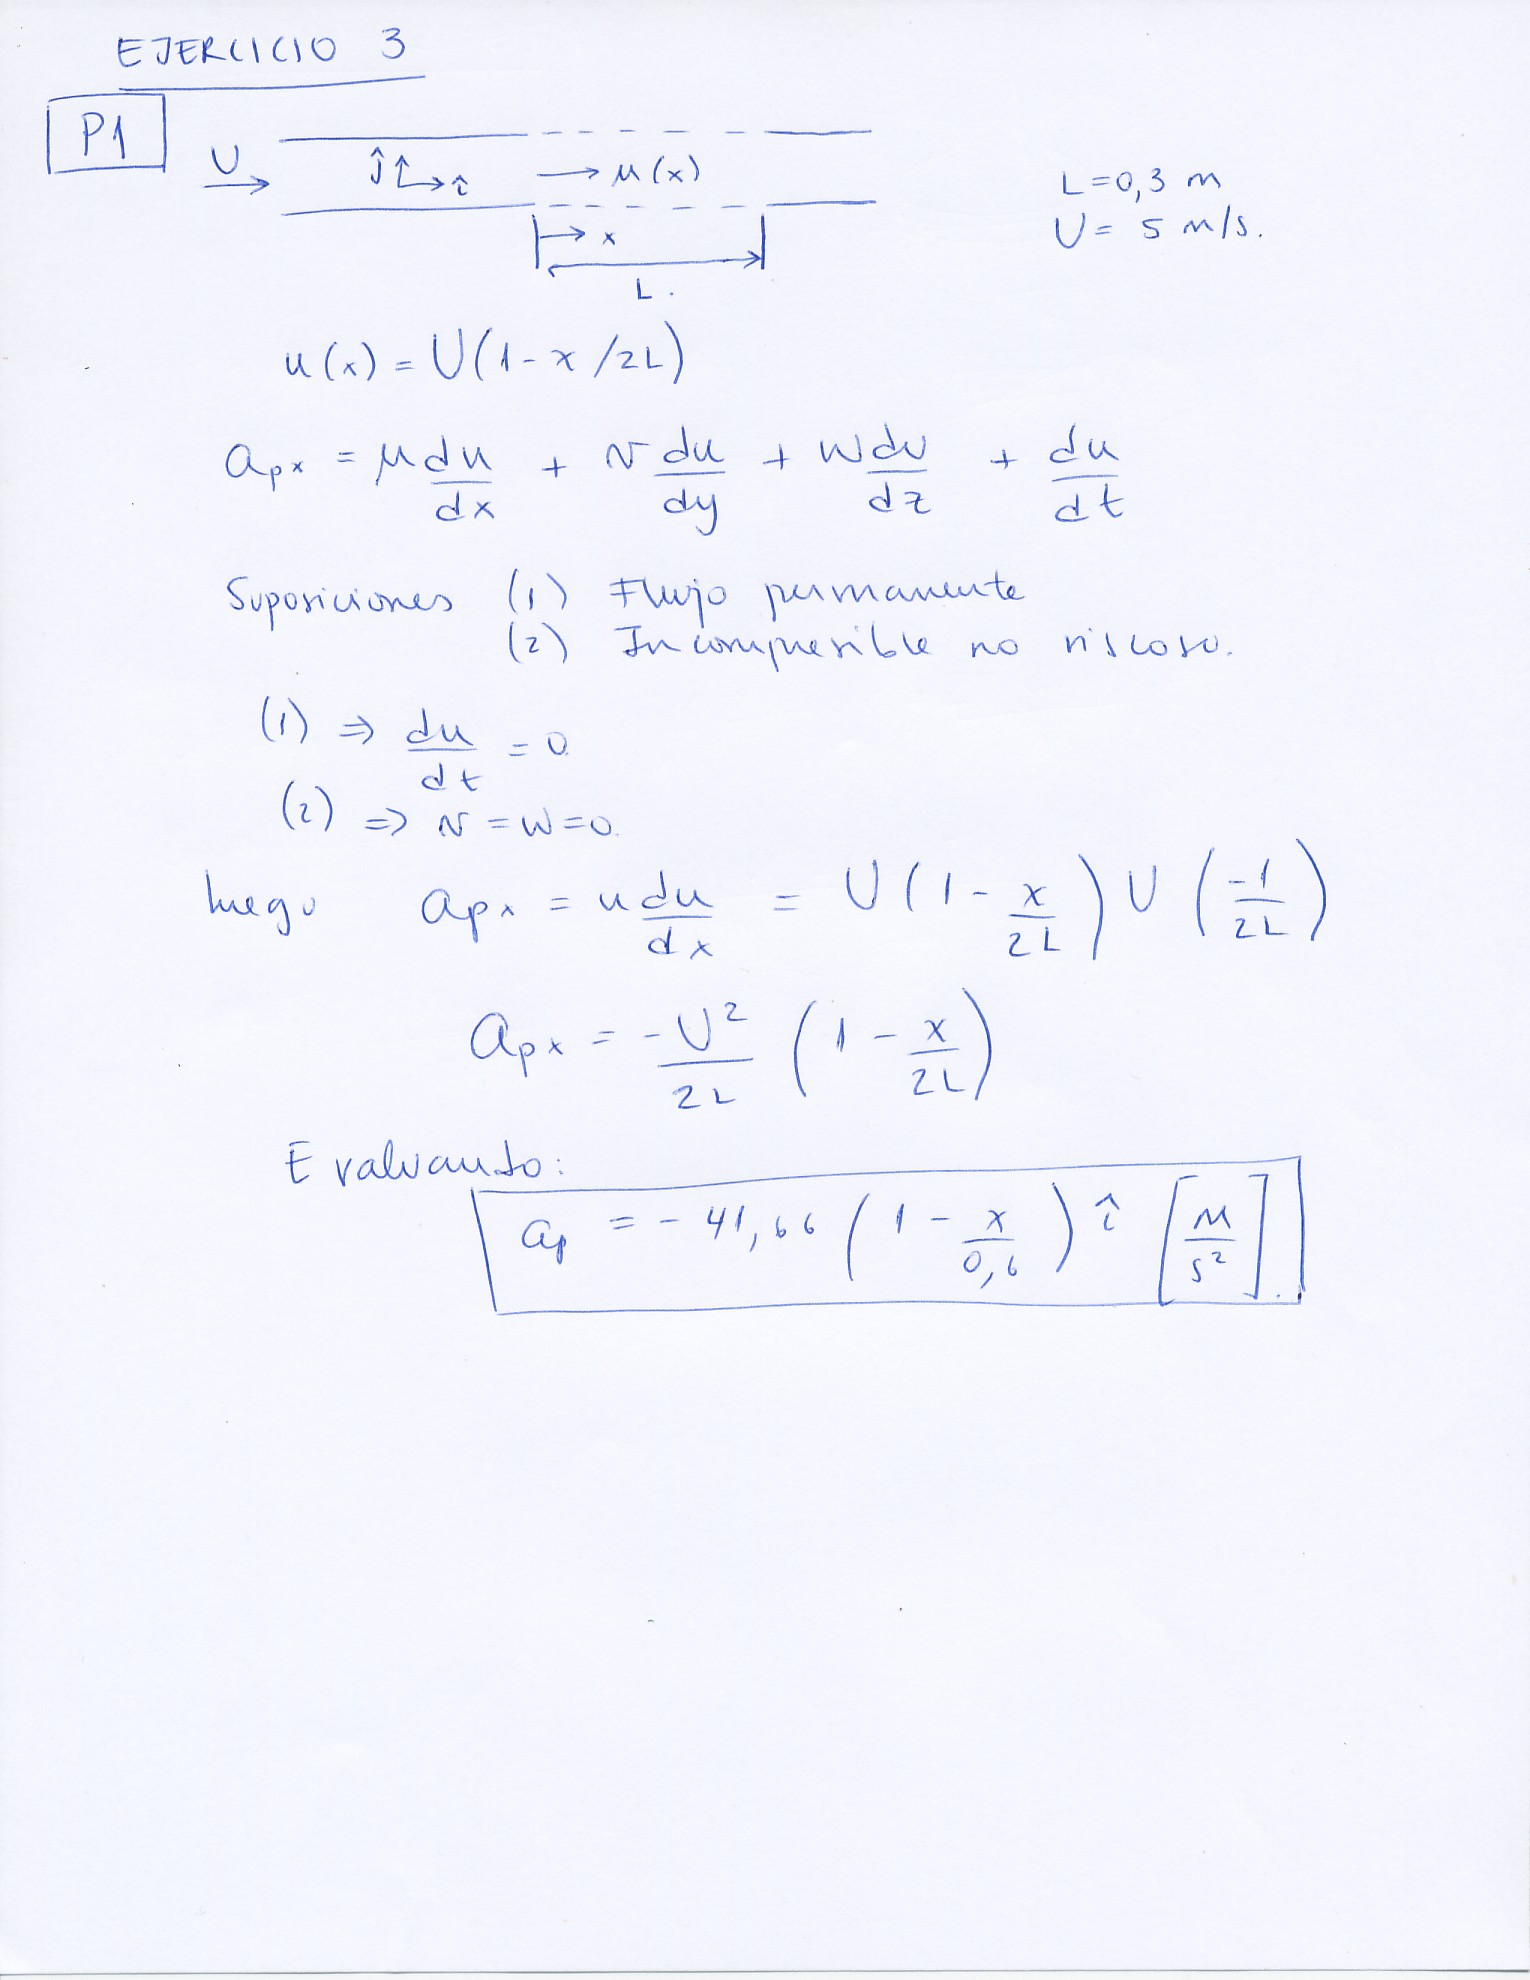 EJERCICIO 3
P1
U
ĵ î → u(x)
L=0,3 m
U= 5 m/s.
x
L.
u(x) = U(1-x/2L)
apx = u du/dx + v du/dy + w dv/dz + du/dt
Suposiciones (1) Flujo permanente
(2) Incompresible no viscoso.
(1) ⇒ du/dt = 0
(2) ⇒ v = w = 0.
luego apx = u du/dx = U(1 - x/2L) U(-1/2L)
apx = -U²/2L (1 - x/2L)
Evaluando:
ap = - 41,66 (1 - x/0,6) î [m/s²].